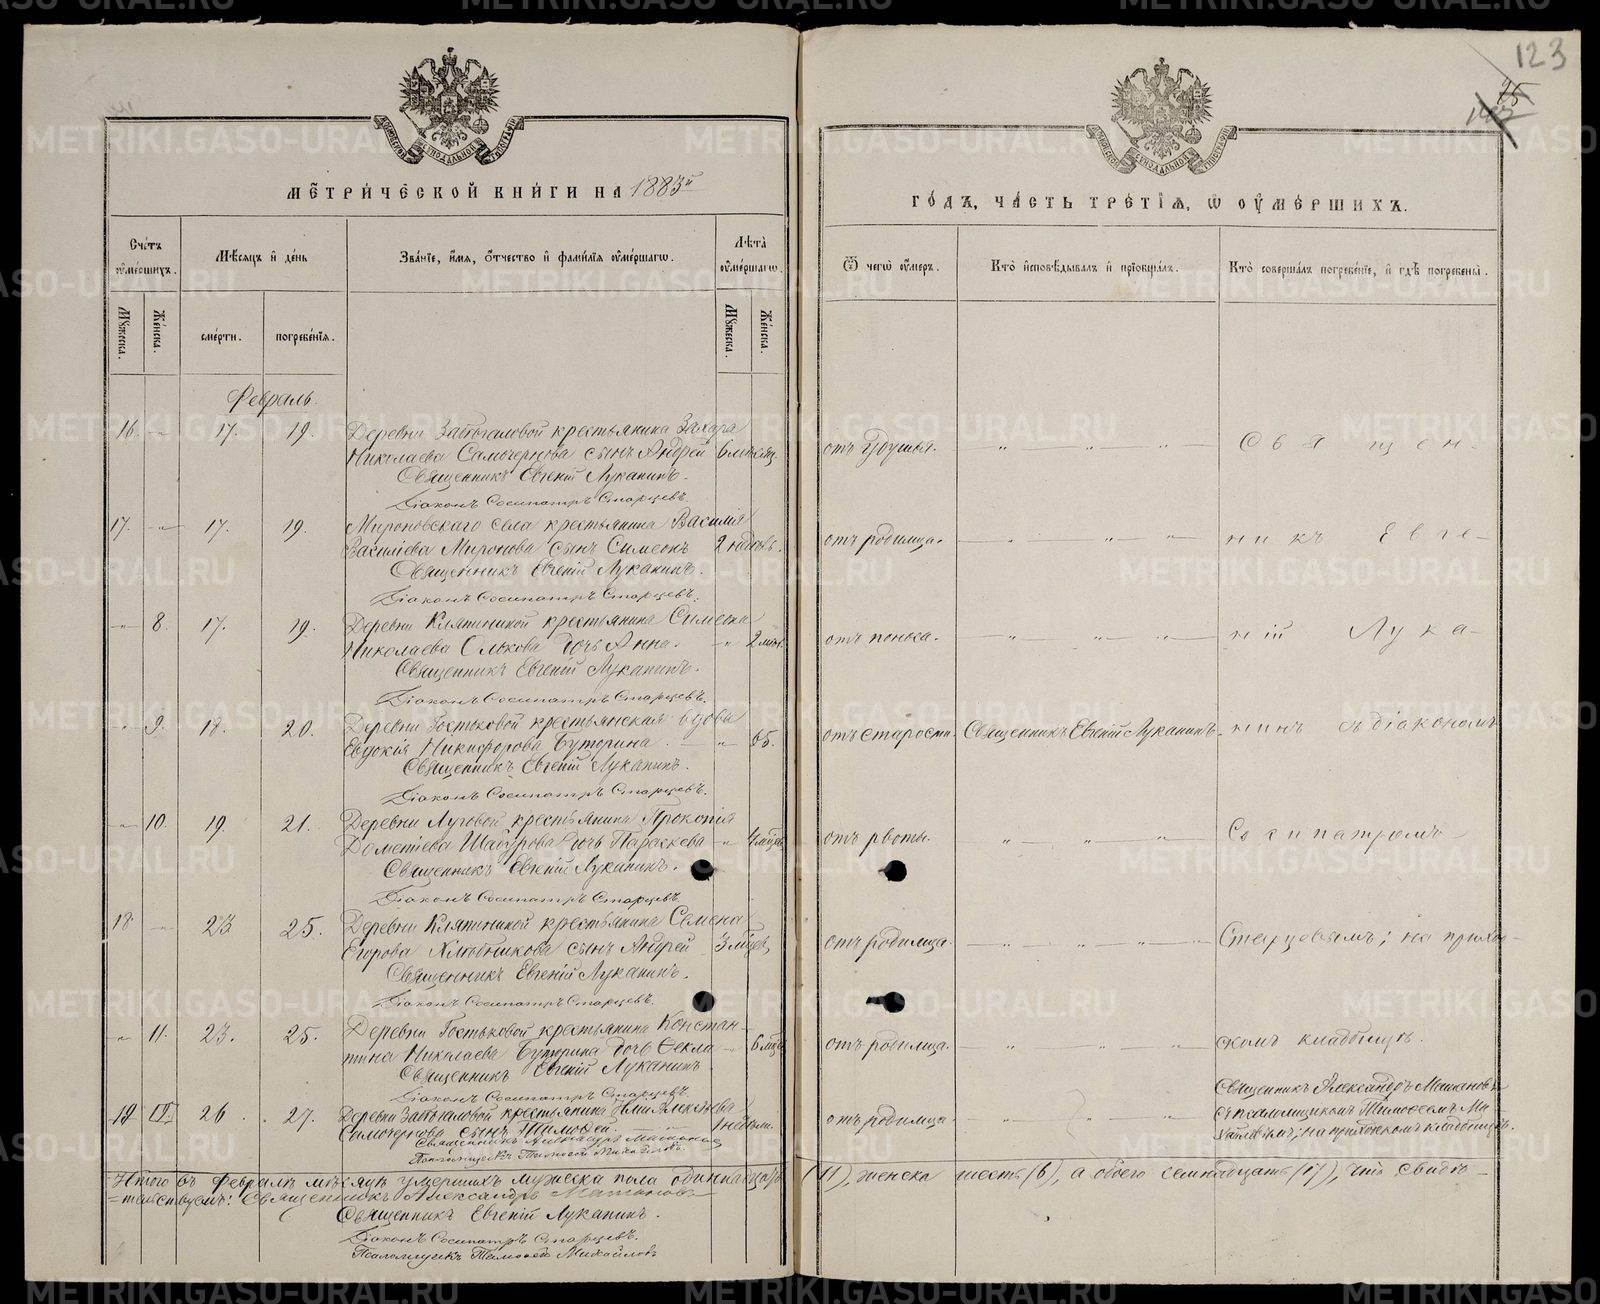 123
МЕТРИЧЕСКОЙ КНИГИ НА 1883й
ГОДЪ, ЧАСТЬ ТРЕТІЯ, Ѿ ОУМЕРШИХЪ.
Счетъ оумершихъ.
Мѣсяцъ и день
Званіе, имя, отчество и фамилія оумершагѡ.
Лѣта оумершагѡ.
Ѿ чегѡ оумеръ.
Кто исповѣдывалъ и пріобщалъ.
Кто совершалъ погребеніе, и гдѣ погребены.
Мужеска.
Женска.
смерти.
погребенія.
Мужеска.
Женска.
Февраль.
16. 17. 19. Деревни крестьянина Захара
Николаева Самочернова сынъ Андрей 6 месяц. отъ удушья. Священ-
Священникъ Евгеній Луканинъ.
Діаконъ Сосипатръ Старцевъ.
17. 17. 19. Мироновскаго села крестьянина Василія
Василіева Миронова сынъ Симеонъ 2 отъ родимца. никъ Евге-
Священникъ Евгеній Луканинъ.
Діаконъ Сосипатръ Старцевъ.
8. 17. 19. Деревни крестьянина Симеона
Николаева дочь Анна. 2 отъ поноса. ній Лука-
Священникъ Евгеній Луканинъ.
Діаконъ Сосипатръ Старцевъ.
9. 18. 20. Деревни Гостьковой крестьянская вдова
Евдокія Никифорова Буторина. 65. отъ старости. Священникъ Евгеній Луканинъ. нинъ съ діакономъ
Священникъ Евгеній Луканинъ.
Діаконъ Сосипатръ Старцевъ.
10. 19. 21. Деревни Луговой крестьянина Прокопія
Дометіева дочь Параскева 4 мцевъ отъ рвоты. Сосипатромъ
Священникъ Евгеній Луканинъ.
Діаконъ Сосипатръ Старцевъ.
18. 23 25. Деревни крестьянина Семена
Егорова сынъ Андрей 3 мцев. отъ родимца. Старцевымъ; на приход-
Священникъ Евгеній Луканинъ.
Діаконъ Сосипатръ Старцевъ.
11. 23. 25. Деревни Гостьковой крестьянина Констан-
тина Николаева Буторина дочь Ѳекла 6 мцев отъ родимца. скомъ кладбищѣ.
Священникъ Евгеній Луканинъ
Діаконъ Сосипатръ Старцевъ.
Священникъ Александръ
26. 27. Деревни крестьянина
Самочернова сынъ Тимоѳей. отъ родимца. съ псаломщикомъ Тимоѳеемъ Ми-
хайловымъ; на приходскомъ кладбищѣ.
Священникъ Александръ
Псаломщикъ Тимоѳей Михайловъ.
Итого въ Февралѣ мѣсяцѣ умершихъ мужеска пола одиннадцать (11), женска шесть (6), а обоего семнадцать (17), что свидѣ-
=тельствуемъ: Священникъ Александръ
Священникъ Евгеній Луканинъ.
Діаконъ Сосипатръ Старцевъ.
Псаломщикъ Тимоѳей Михайловъ
METRIKI.GASO-URAL.RU